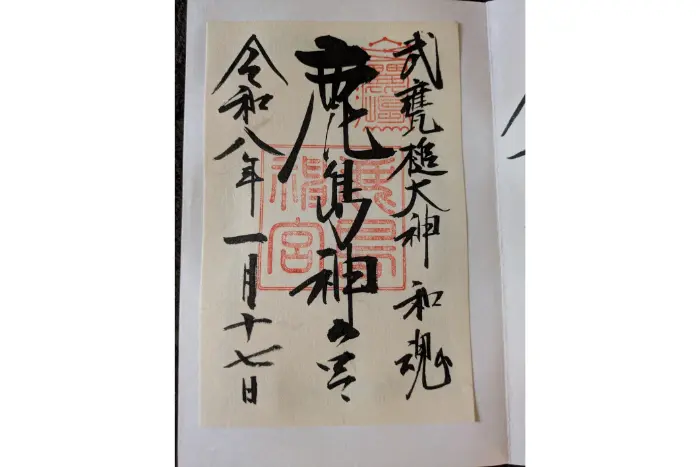 武甕槌大神 和魂
鹿島神宮
令和八年一月十七日
鹿島
神宮